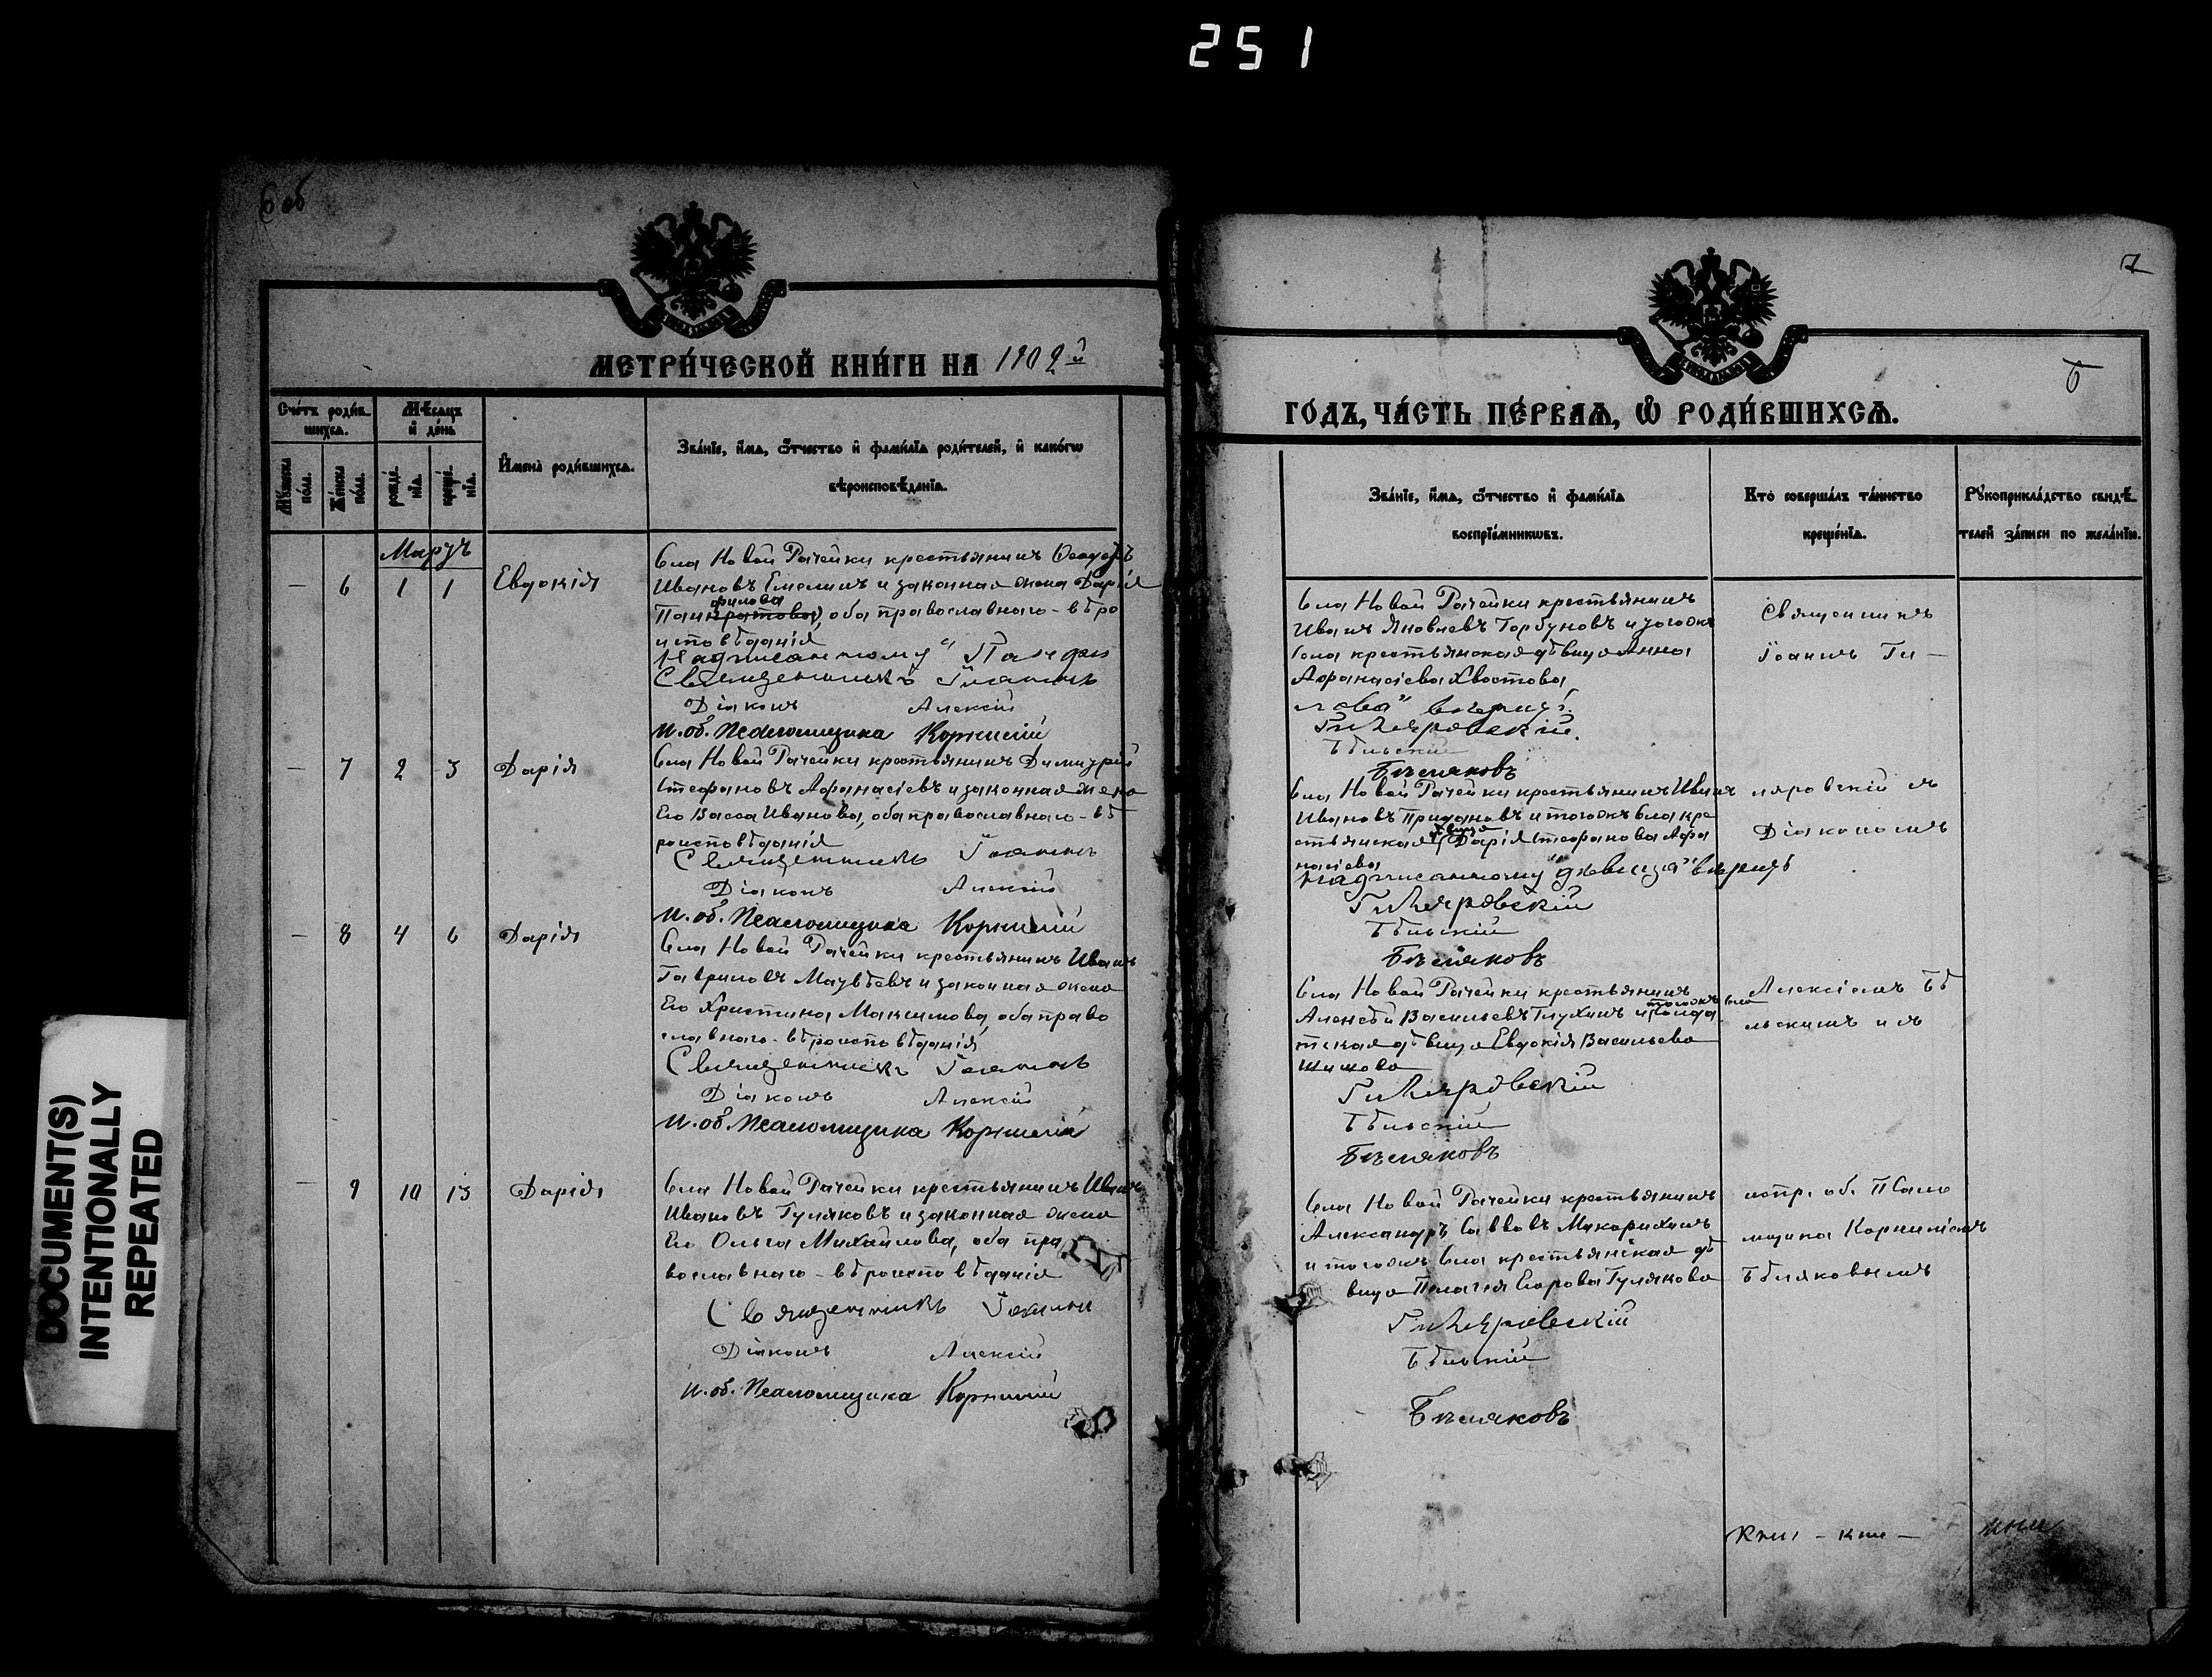 251
6 об
МЕТРИ́ЧЕСКОЙ КНИ́ГИ НА 1909 й
Сче́тъ роди́в-
шихсѧ.
Мѣ́сѧцъ
и де́нь
Мꙋ́жеска
по́ла.
Же́нска
по́ла.
рожде́-
нїѧ.
креще́-
нїѧ.
Имена̀ роди́вшихсѧ.
Зва́нїе, и́мѧ, ѻ́тчество и фамѝлїѧ роди́телей, и како́гѡ
вѣроисповѣ́данїѧ.
Мартъ
— 6 1 1 Евдокія
Села Новой Рачейки крестьянинъ Ѳеодоръ
Ивановъ Емелинъ и законная жена Дарія
филова
Панкратова, оба православнаго - вѣро
исповѣданія
Надписанному "Панфи
Священникъ Іоаннъ
Діаконъ Алексій
И. об. Псаломщика Корнилій
— 7 2 3 Дарія
Села Новой Рачейки крестьянинъ Димитрій
Стефановъ Афанасіевъ и законная жена
Его Васса Иванова, оба православнаго - вѣ
роисповѣданія
Священникъ Іоаннъ
Діаконъ Алексій
И. об. Псаломщика Корнилій
— 8 4 6 Дарія
Села Новой Рачейки крестьянинъ Иванъ
Гавриловъ Матвѣевъ и законная жена
Его Христина Максимова, оба право
славнаго - вѣроисповѣданія
Священникъ Іоаннъ
Діаконъ Алексій
И. об. Псаломщика Корнилій
— 9 10 13 Дарія
Села Новой Рачейки крестьянинъ Иванъ
Ивановъ Гуляковъ и законная жена
Его Ольга Михайлова, оба пра
вославнаго - вѣроисповѣданія
Священникъ Іоаннъ
Діаконъ Алексій
И. об. Псаломщика Корнилій
7
6
ГОДЪ, ЧА́СТЬ ПЕ́РВАѦ, Ѡ РОДИ́ВШИХСѦ.
Зва́нїе, и́мѧ, ѻ́тчество и фами́лїѧ
воспрїе́мникѡвъ.
Кто̀ соверша́лъ та́инство
креще́нїѧ.
Рꙋкоприкла́дство свидѣ́-
телей за́писи по жела́нїю.
Села Новой Рачейки крестьянинъ
Иванъ Яковлевъ Горбуновъ и тогожъ
села крестьянская дѣвица Анна
Афанасіева Хвостова
лова" вѣрить.
Гиляровскій.
Бѣльскій
Бѣляковъ
Священникъ
Іоаннъ Ги —
Села Новой Рачейки крестьянинъ Иванъ
Ивановъ Придановъ и тогожъ села кре
дѣвица
стьянская Дарія Стефанова Афа
насіева
Надписанному "дѣвица" вѣрить
Гиляровскій
Бѣльскій
Бѣляковъ
ляровскій съ
Діакономъ
Села Новой Рачейки крестьянинъ
тогожъ села
Алексѣй Васильевъ Глухинъ и солда
тская дѣвица Евдокія Васильева
Шишова
Гиляровскій
Бѣльскій
Бѣляковъ
Алексіемъ Бѣ
льскимъ и съ
Села Новой Рачейки крестьянинъ
Александръ Савовъ Макарихинъ
и тогожъ села крестьянская дѣ
вица Пелагія Егорова Гулякова
Гиляровскій
Бѣльскій
Бѣляковъ
испр. об. Псало
мщика Корниліемъ
Бѣляковымъ
DOCUMENT(S)
INTENTIONALLY
REPEATED